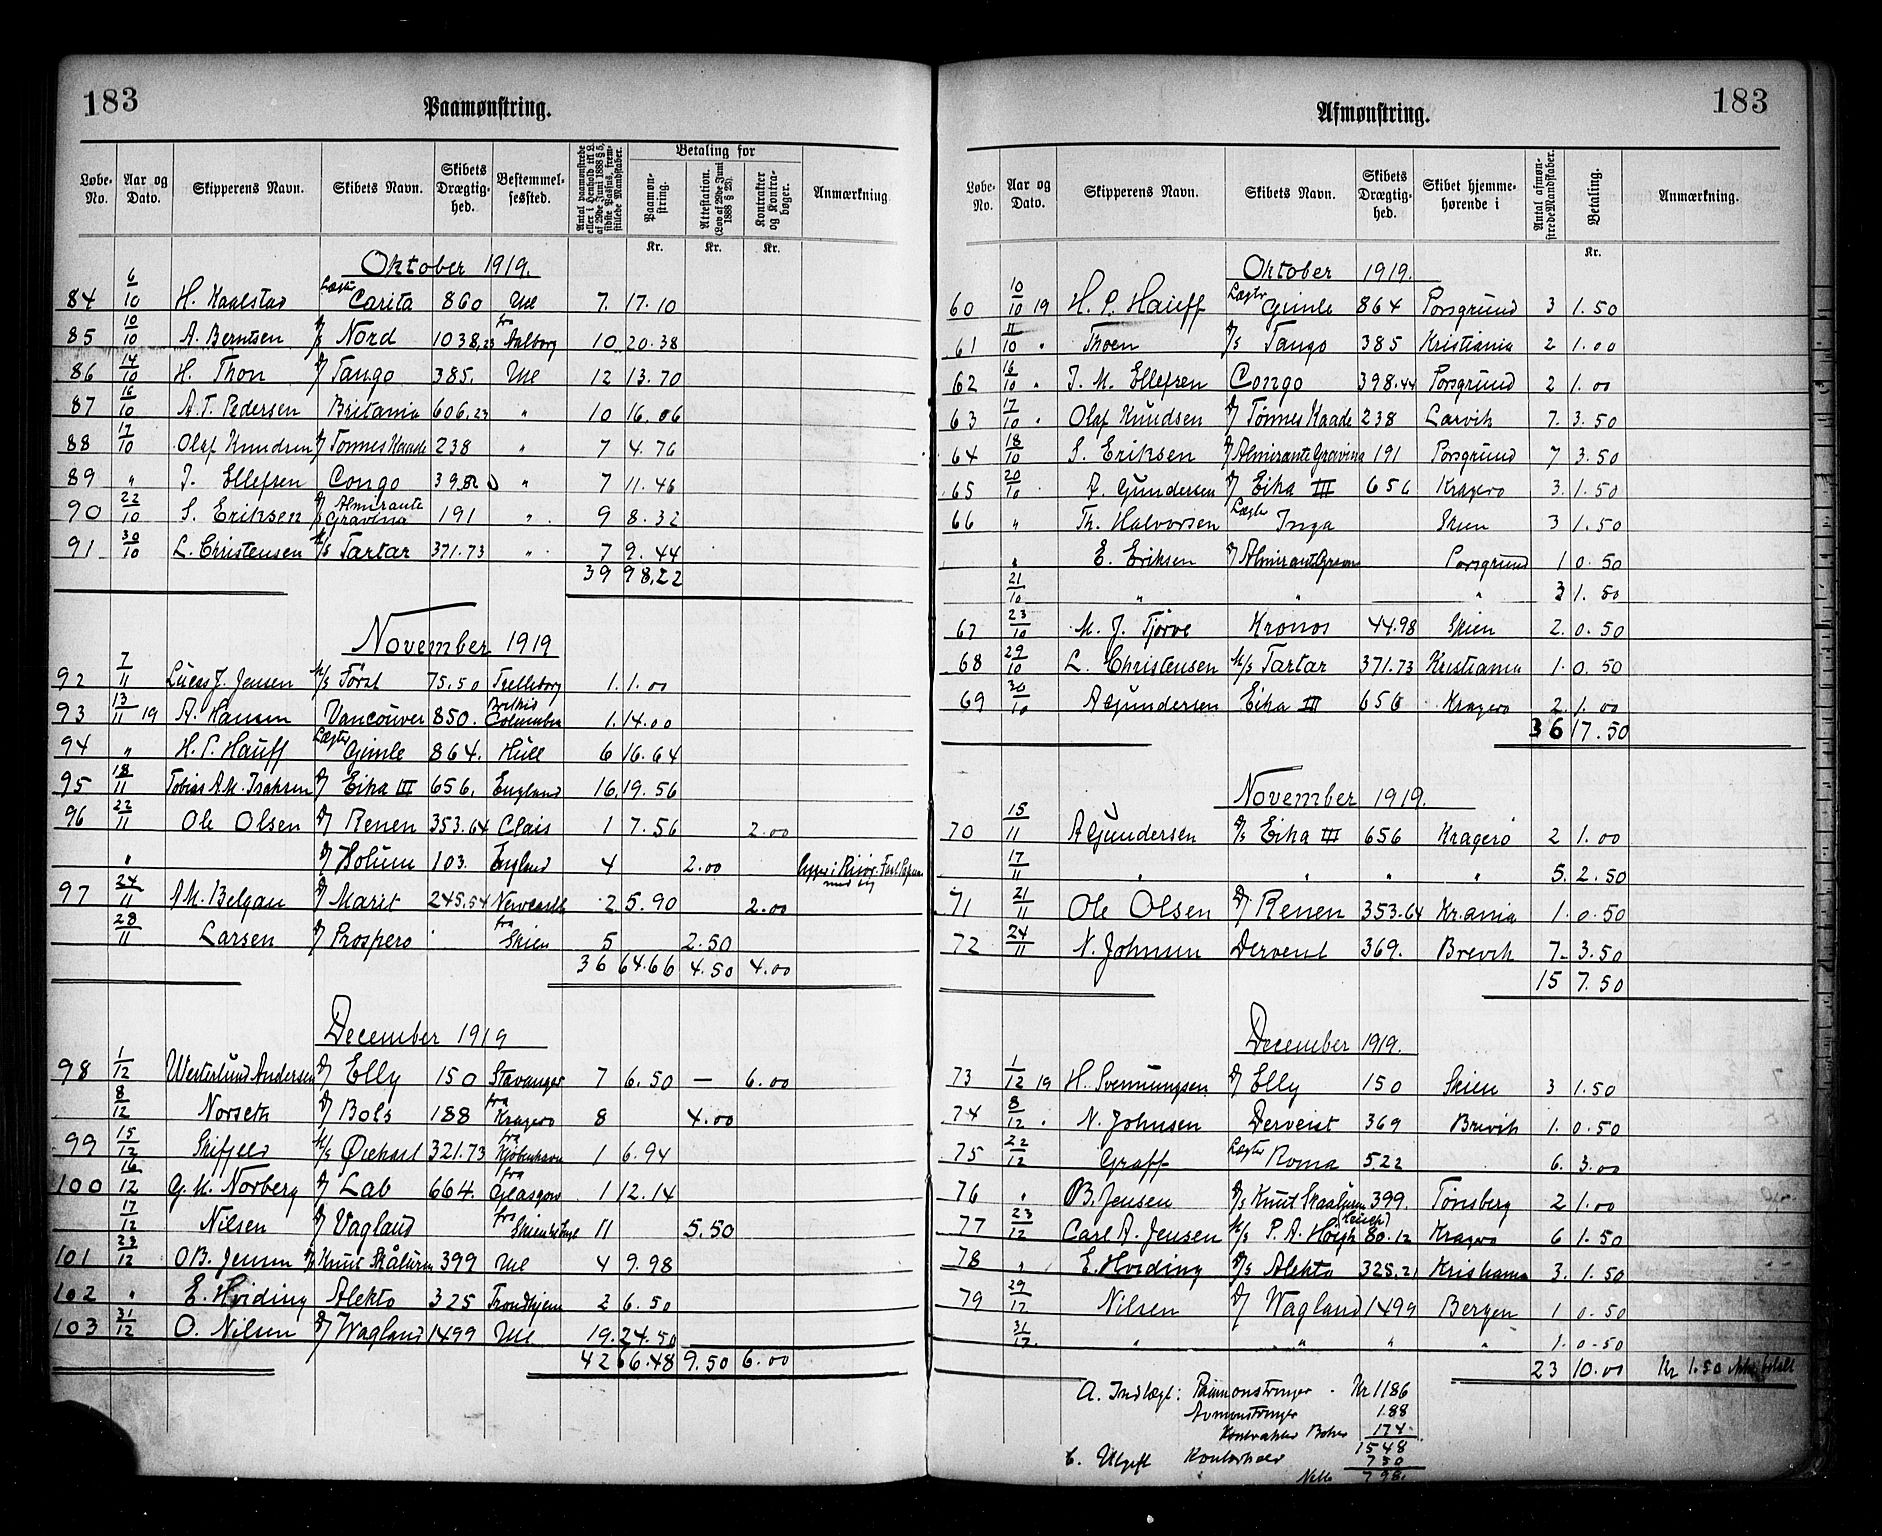 183
Paamønstring.
Løbe-No. Aar og Dato. Skipperens Navn. Skibets Navn. Skibets Drægtighed. Bestemmelsessted. Antal paamønstrede eller i Henhold til L. af 29de Juni 1888 § 5, sidste Passus, fremstillede Mandskaber. Betaling for Paamønstring. Attestation. (Lov af 29de Juni 1888 § 23). Kontrakter og Kontrabøger. Anmærkning.
Kr. Kr. Kr.
Oktober 1919.
84 6/10 H. Kaalstad Lægter Carita 860 Hull 7. 17.10
85 10/10 A. Berntsen D/S Nord 1038,23 fra Aalborg 10 20.38
86 14/10 H. Thon D/ Tango 385. Hull 12 13.70
87 16/10 A.T. Pedersen Britania 606,23 " 10 16.06
88 17/10 Olaf Knudsen D/ Tonnes Kaade 238 " 7 4.76
89 " J. Ellefsen Congo " 7 11.46
90 22/10 S. Eriksen D/S Almirante Gravina 191 " 9 8.32
91 30/10 L. Christensen M/S Tartar 371.73 " 7 9.44
39 98,22
November 1919
92 7/11 Lucas J. Jensen M/S Først 75.50 Trelleborg 1. 1.00
93 13/11 19 A. Hansen Vancouver 850. British Columbia 1. 14.00
94 " H.P. Hauff Lægter Gimle 864. Hull 6 16.64
95 18/11 Tobias A.M. Isaksen D/ Eika III 656. England 16. 19.56
96 22/11 Ole Olsen D/ Renen 353.64 Clais 1 7.56 2.00
" D/ Holum 103. England 4 2.00
97 24/11 A.M. Belgau D/ Marit 245.54 Newcastle 2 5.90 2.00
28/11 Larsen D/ Prospero fra Skien 5 2.50
36 64.66 4.50 4.00
December 1919
98 1/12 Westerlund Andersen D/ Elly 150 Stavanger 7 6.50 — 6.00
8/12 Norseth D/ Bols 188 fra Kragerø 8 4.00
99 15/12 Skifjeld M/S 321.73 fra Kjøbenhavn 1 6.94
100 16/12 G.M. Norberg D/ Lab 664. fra Glasgow 1 12.14
17/12 Nilsen D/ Vagland fra 11 5.50
101 23/12 O B. Jensen D/S Knut Skålurn 399 Hull 4 9.98
102 " E. Hviding Alekto 325 Trondhjem 2 6.50
103 31/12 O. Nilsen D/ Wagland 1499 Hull 19. 24.50
42 66.48 9.50 6.00
Afmønstring.
183
Løbe-No. Aar og Dato. Skipperens Navn. Skibets Navn. Skibets Drægtighed. Skibet hjemmehørende i Antal afmønstrede Mandskaber. Betaling. Anmærkning.
Kr.
Oktober 1919.
60 10/10 19 H. P. Hauff Lægter Gimle 864 Porsgrund 3 1.50
61 11/10 " Thoen D/S Tango 385 Kristiania 2 1.00
62 16/10 " J. M. Ellefsen Congo 398.44 Porsgrund 2 1.00
63 17/10 " Olaf Knudsen D/ Tønnes Kaade 238 Larvik 7. 3.50
64 18/10 S. Eriksen D/ Almirante Gravina 191 Porsgrund 7 3.50
65 20/10 A. Gundersen D/ Eika III 656 Kragerø 3. 1.50
66 " Th. Halvorsen Lægter Inga Skien 3 1.50
" E. Eriksen D/ Almirante Gravina Porsgrund 1 0.50
21/10 " " " 3 1.50
67 23/10 M. J. Tjørve Kronos 44.98 Skien 2. 0.50
68 29/10 L. Christensen M/S Tartar 371.73 Kristiania 1. 0.50
69 30/10 A Gundersen Eika III 656 Kragerø 2. 1.00
36 17.50
November 1919.
70 15/11 A Gundersen D/S Eika III 656 Kragerø 2 1.00
17/11 " " " " 5. 2.50
71 21/11 Ole Olsen D/ Renen 353.64 Kr.ania 1. 0.50
72 24/11 N. Johnsen Dervent 369. Brevik 7. 3.50
15 7.50
December 1919.
73 1/12 19 H. Svennungsen D/ Elly 150 Skien 3 1.50
74 8/12 " N. Johnsen Dervent 369 Brevik 1. 0.50
75 22/12 Graff Lægter Roma 522 6. 3.00
76 " O B. Jensen D/S Knut Skaalurn 399. Tønsberg 2 1.00
77 23/12 Carl A. Jensen M/S P. A. Høigh 80.12 Kragerø 6 1.50
78 " E. Hviding D/S Alekto 325,21 Kristiania 3. 1.50
79 29/12 Nilsen D/ Wagland 1499 Bergen 1 0.50
31/12. " " " " 1. 0.50
23 10.00 Kr 1.50 ikke betalt
A. Indtægt: Paamønstringer - Kr 1186
Avmønstringer 188
Kontrakter Bøker 174
1548
Utgift Kontorhold 750
Netto 798.